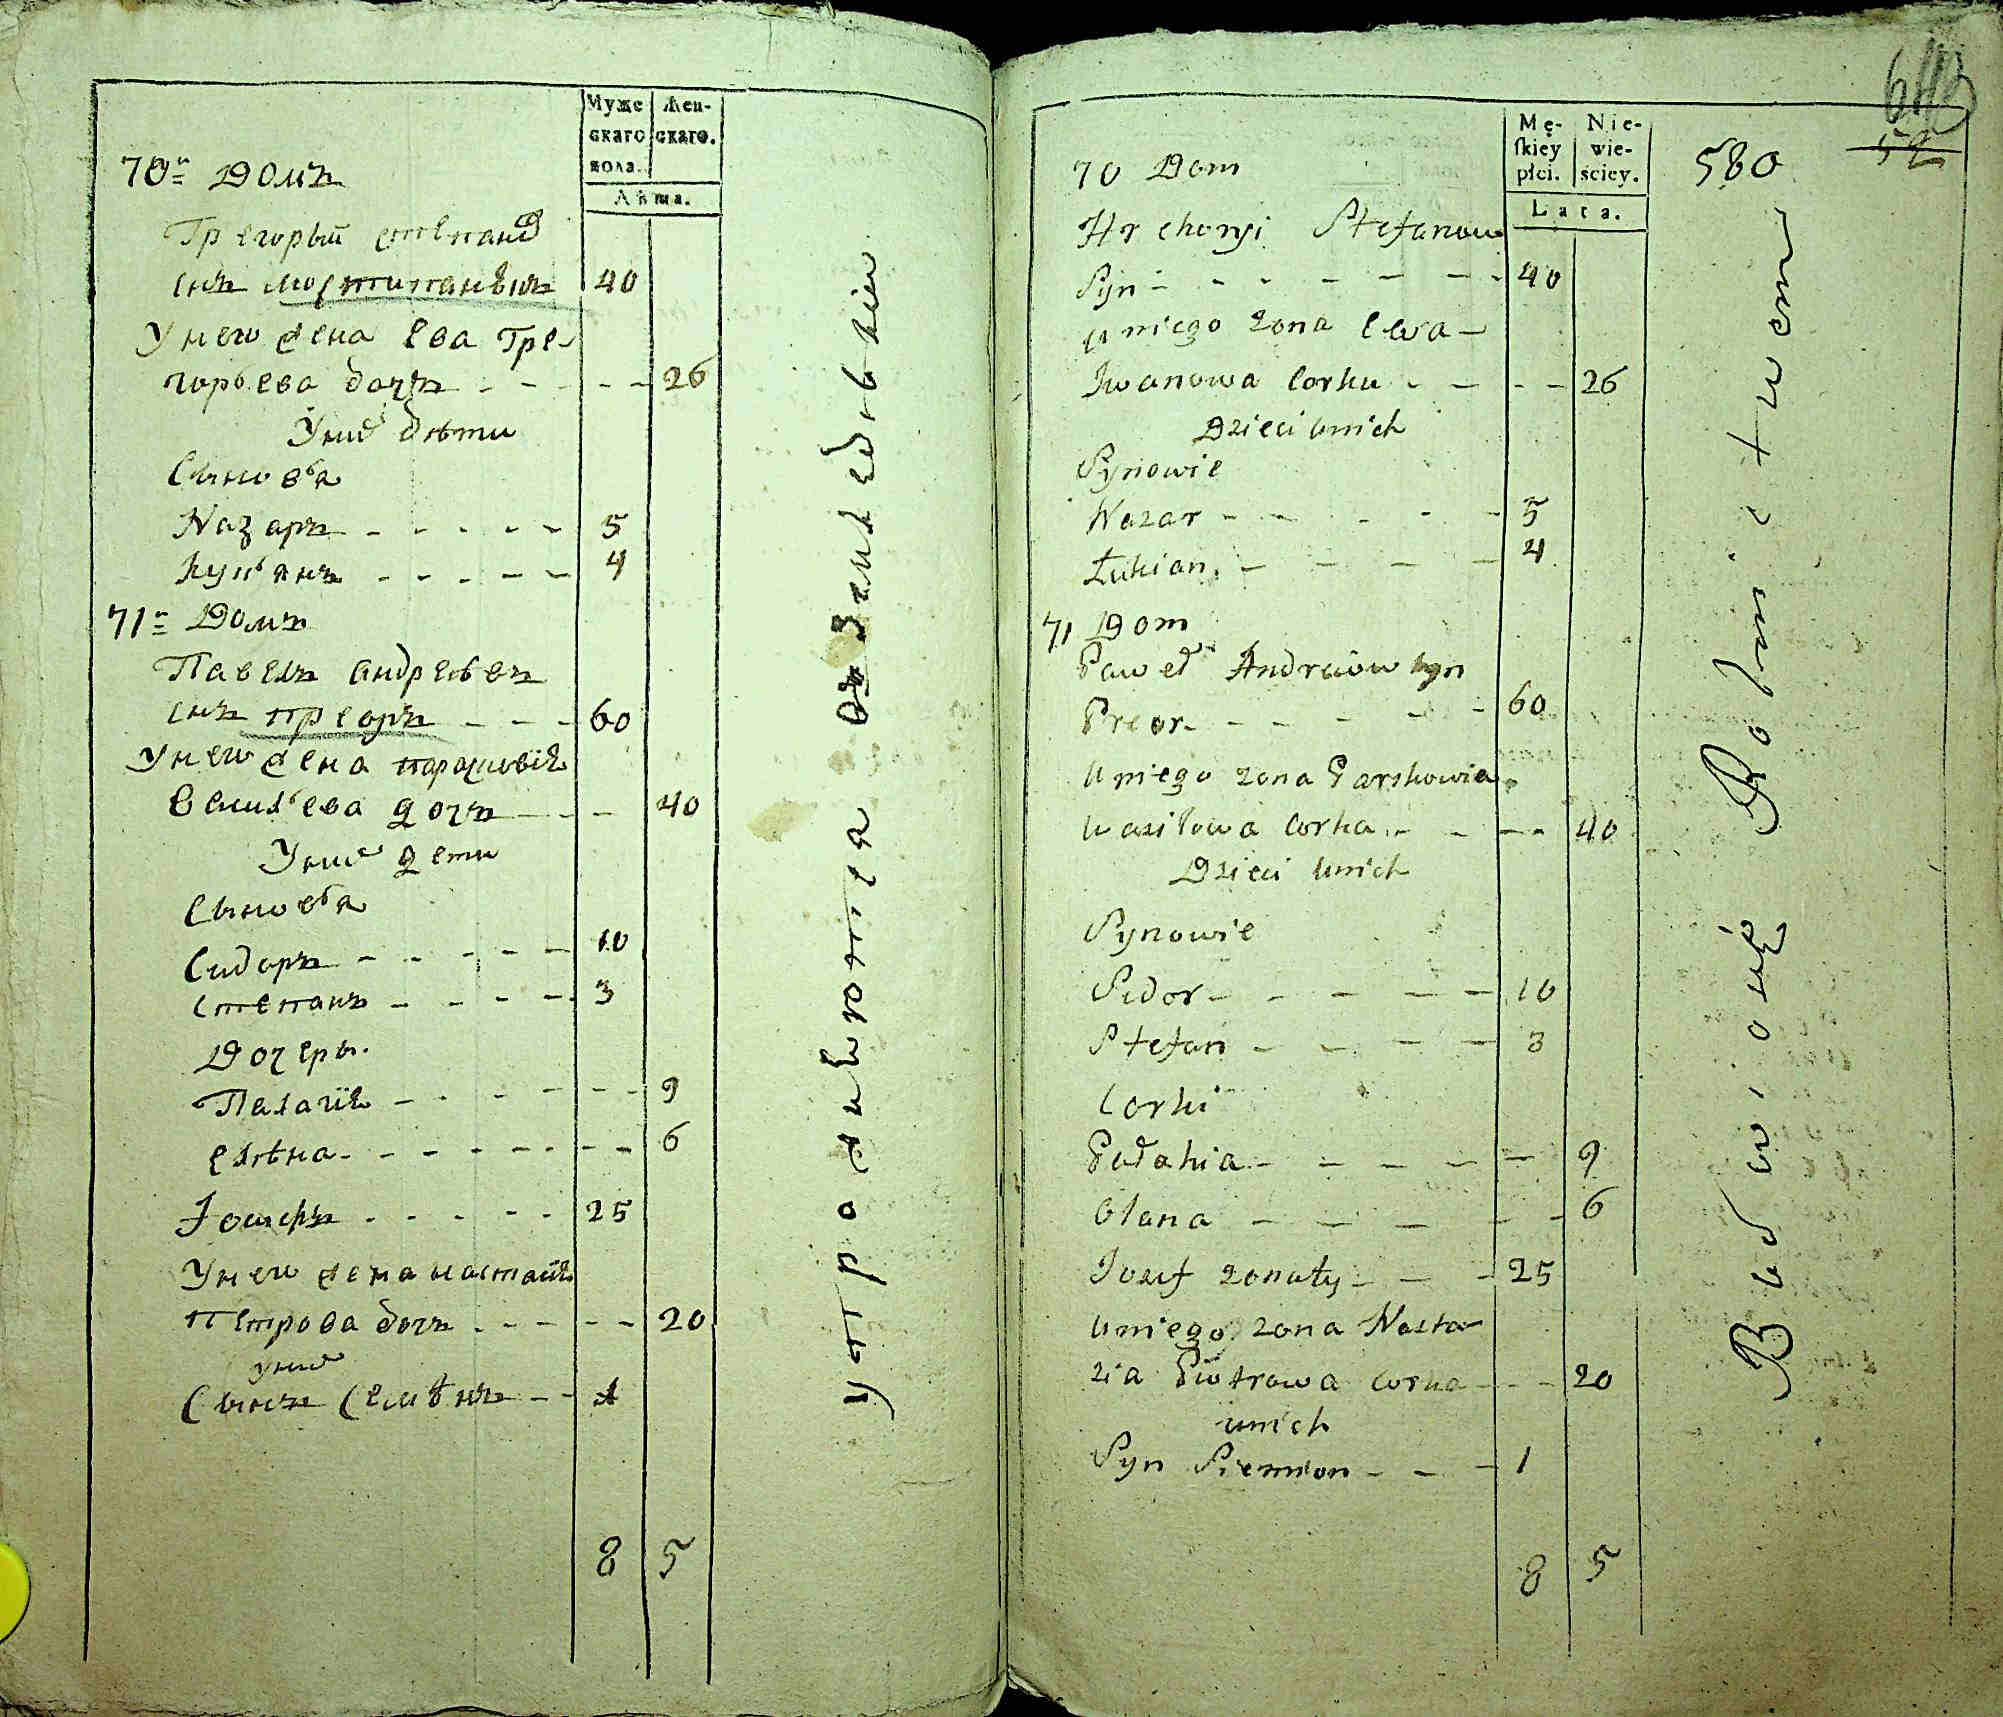 Муже
скаго
пола.
Жен-
скаго.
Лѣта.
70й Домъ
Грегорый степанов
снъ 40
У него жена Ева Гре-
горьева дочъ - - - - - 26
У них дѣти
Сыновья
Назаръ - - - - - 5
Лукьянъ - - - - - 4
71й Домъ
Павелъ андреевъ
снъ преоръ - - - 60
У него жена парасковія
Василева дочъ - - - 40
У них дети
Сыновья
Сидоръ - - - - - 10
степанъ - - - - 3
Дочеры.
Палагія - - - - - - 9
елѣна - - - - - - - - 6
Іосифъ - - - - - 25
У него жена настасія
Петрова дочъ - - - - - 20
у них
Сынъ Семѣнъ - - 1
8 5
упражняются в земледѣлии
Mę-
skiey
płci.
Nie-
wie-
ściey.
Lata.
580
52
70 Dom
Hrehoryi Stefanow
Syn - - - - - - - 40
u niego żona Ewa -
Iwanowa Corka - - - - 26
Dzieci u nich
Synowie
Nazar - - - - - 5
Łukian - - - - - 4
71 Dom
Paweł Andreiow syn
Preor - - - - - - 60
U niego żona Parskowia
Wasilowa Corka - - - - 40
Dzieci u nich
Synowie
Sidor - - - - - 10
Stefan - - - - - 3
Corki
Pałahia - - - - - - 9
Olana - - - - - - 6
Iozef żonaty - - - 25
U niego żona Nasta-
zia Piotrowa corka - - - 20
u nich
Syn Siemion - - - 1
8 5
Bawiący Rolnictwem